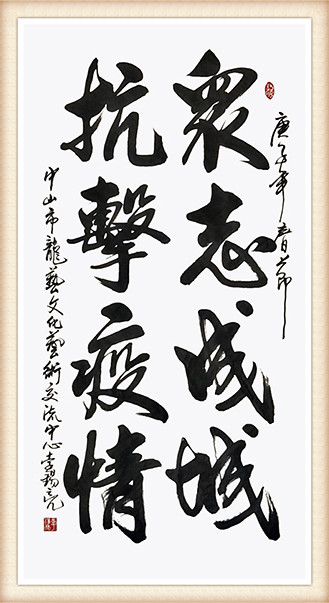 庚子年春节
眾志成城
抗擊疫情
中山市龍藝文化藝術交流中心李錫亮